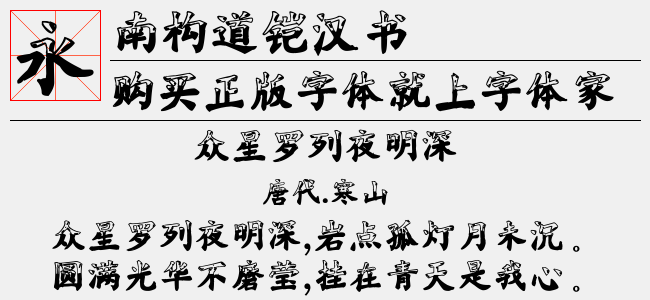 永
南构道铠汉书
购买正版字体就上字体家
众星罗列夜明深
唐代.寒山
众星罗列夜明深,岩点孤灯月未沉。
圆满光华不磨莹,挂在青天是我心。